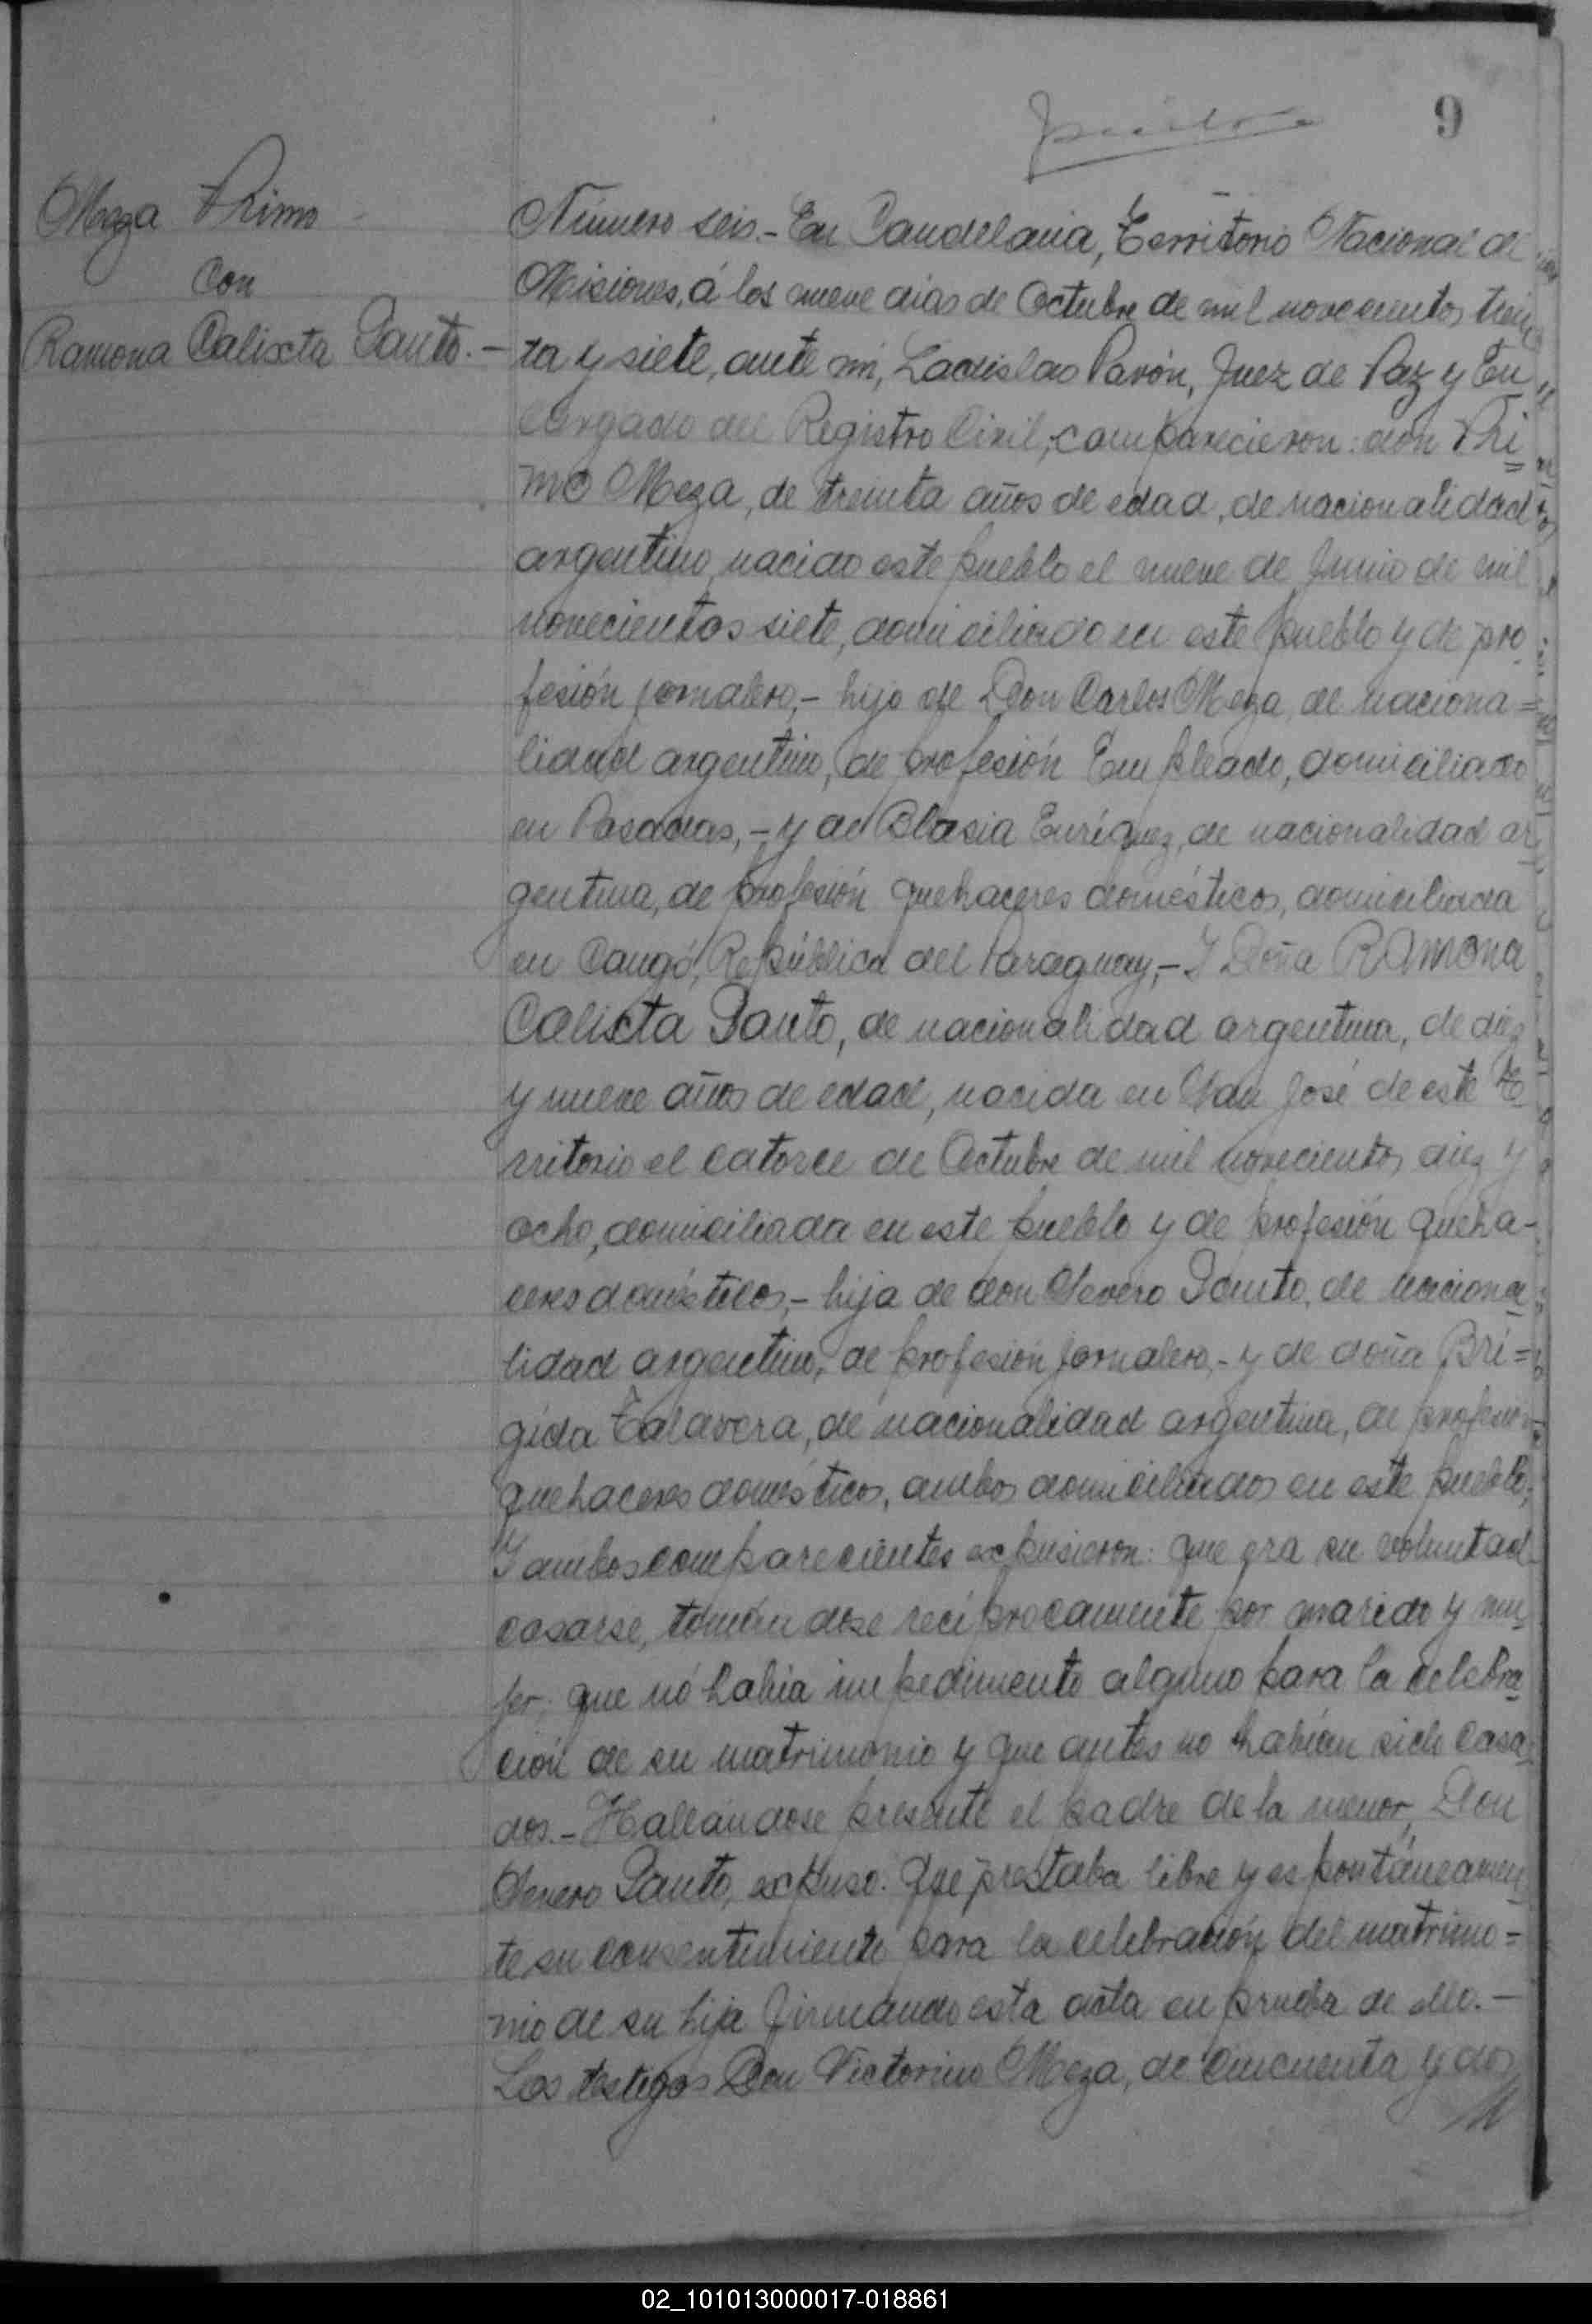 9
Meza Primo
con
Ramona Calixta Pauto.-
Número seis.- En Candelaria, Territorio Nacional de
Misiones, á los nueve dias de Octubre de mil novecientos trein
ta y siete, ante mi, Ladislao Pavón, Juez de Paz y En
cargado del Registro Civil, comparecieron: don Pri
mo Meza, de treinta años de edad, de nacionalidad
argentino, nacido este pueblo el nueve de Junio de mil
novecientos siete, domiciliado en este pueblo y de pro
fesión jornalero,- hijo de Don Carlos Meza, de naciona=
lidad argentino, de profesión Empleado, domiciliado
en Posadas,- y de Blasia Enríquez, de nacionalidad ar
gentina, de profesión quehaceres domésticos, domiciliada
en Cangó, República del Paraguay,- Y Doña Ramona
Calixta Pauto, de nacionalidad argentina, de diez
y nueve años de edad, nacida en San José de este Te
rritorio el catorce de Octubre de mil novecientos diez y
ocho, domiciliada en este pueblo y de profesión queha-
ceres domésticos,- hija de don Severo Pauto, de naciona
lidad argentino, de profesión jornalero,- y de doña Bri=
gida Talavera, de nacionalidad argentina, de profesión
quehaceres domésticos, ambos domiciliados en este pueblo,
Y ambos comparecientes expusieron: que era su voluntad
casarse, tomándose recíprocamente por marido y mu
jer; que nó habia impedimento alguno para la celebra
ción de su matrimonio y que antes no habían sido casa
dos.- Hallándose presente el padre de la menor, Don
Severo Pauto, expuso: que prestaba libre y espontáneamen
te su consentimiento para la celebración del matrimo=
nio de su hija firmando esta acta en prueba de ello.-
Los testigos Don Victorino Meza, de cincuenta y dos
02_101013000017-018861